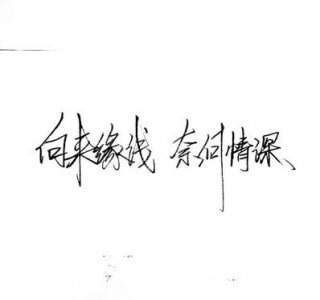 向来缘浅 奈何情深、